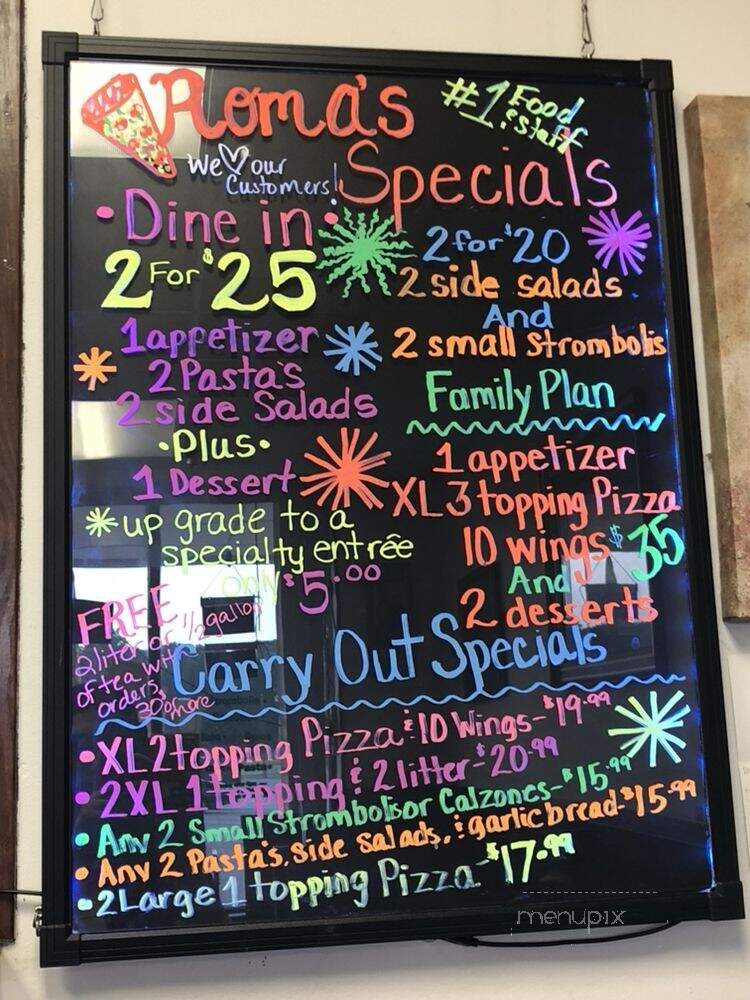 Roma's
#1 Food
& staff
We ♡ our
Customers!
Specials
• Dine in •
2 For $25
1 appetizer
2 Pasta's
2 side Salads
• Plus •
1 Dessert
* up grade to a
specialty entrée
only $5.00
2 for $20
2 side salads
And
2 small Strombolis
Family Plan
1 appetizer
XL 3 topping Pizza
10 wings $35
And
2 desserts
FREE
2 liter or 1/2 gallon
of tea with
orders
30 or more
Carry Out Specials
• XL 2 topping Pizza & 10 Wings - $19.99
• 2 XL 1 topping & 2 litter - $20.99
• Any 2 Small Strombolis or Calzones - $15.99
• Any 2 Pasta's, side salads, & garlic bread - $15.99
• 2 Large 1 topping Pizza - $17.99
menupix